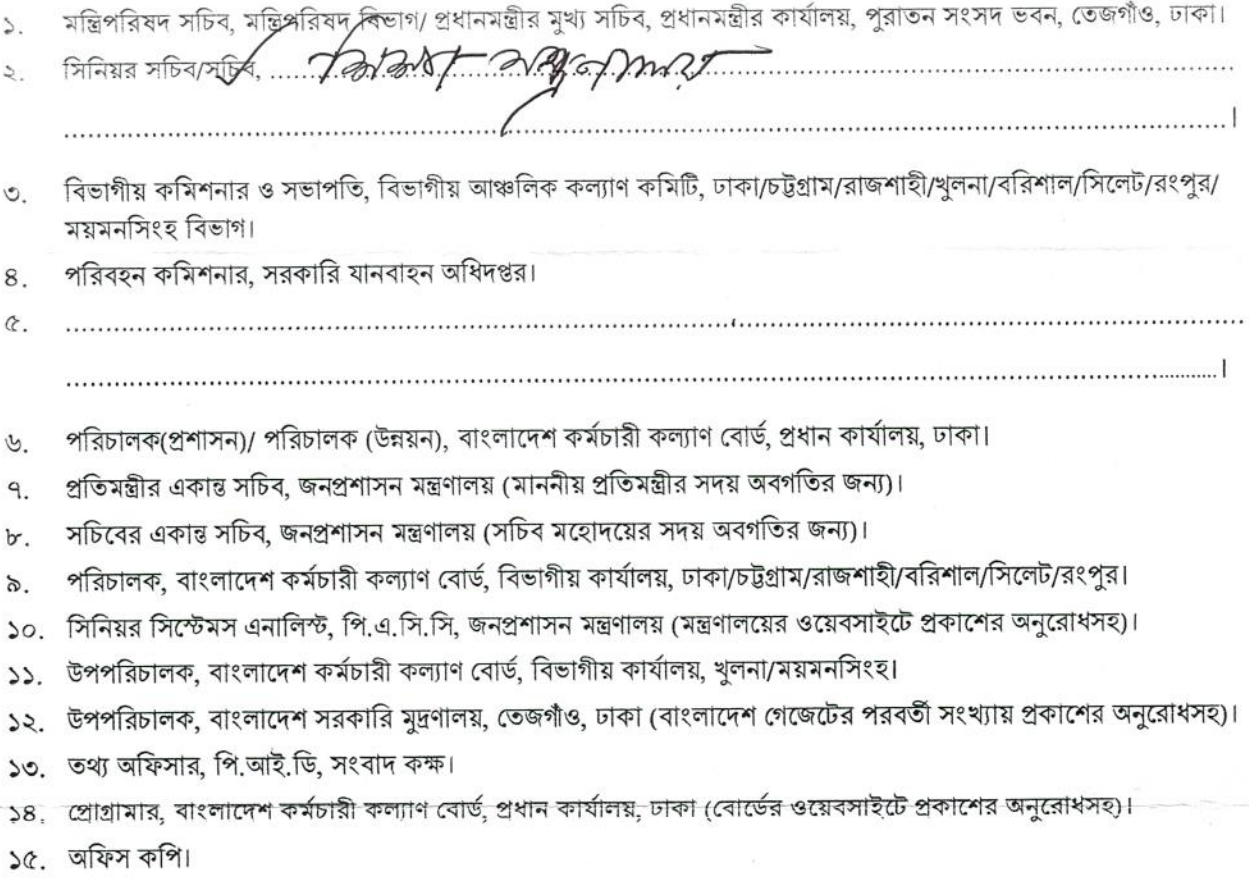 ১. মন্ত্রিপরিষদ সচিব, মন্ত্রিপরিষদ বিভাগ/ প্রধানমন্ত্রীর মুখ্য সচিব, প্রধানমন্ত্রীর কার্যালয়, পুরাতন সংসদ ভবন, তেজগাঁও, ঢাকা।
২. সিনিয়র সচিব/সচিব, ....................
....................।
৩. বিভাগীয় কমিশনার ও সভাপতি, বিভাগীয় আঞ্চলিক কল্যাণ কমিটি, ঢাকা/চট্টগ্রাম/রাজশাহী/খুলনা/বরিশাল/সিলেট/রংপুর/
ময়মনসিংহ বিভাগ।
৪. পরিবহন কমিশনার, সরকারি যানবাহন অধিদপ্তর।
৫. ....................
....................।
৬. পরিচালক(প্রশাসন)/ পরিচালক (উন্নয়ন), বাংলাদেশ কর্মচারী কল্যাণ বোর্ড, প্রধান কার্যালয়, ঢাকা।
৭. প্রতিমন্ত্রীর একান্ত সচিব, জনপ্রশাসন মন্ত্রণালয় (মাননীয় প্রতিমন্ত্রীর সদয় অবগতির জন্য)।
৮. সচিবের একান্ত সচিব, জনপ্রশাসন মন্ত্রণালয় (সচিব মহোদয়ের সদয় অবগতির জন্য)।
৯. পরিচালক, বাংলাদেশ কর্মচারী কল্যাণ বোর্ড, বিভাগীয় কার্যালয়, ঢাকা/চট্টগ্রাম/রাজশাহী/বরিশাল/সিলেট/রংপুর।
১০. সিনিয়র সিস্টেমস এনালিস্ট, পি.এ.সি.সি, জনপ্রশাসন মন্ত্রণালয় (মন্ত্রণালয়ের ওয়েবসাইটে প্রকাশের অনুরোধসহ)।
১১. উপপরিচালক, বাংলাদেশ কর্মচারী কল্যাণ বোর্ড, বিভাগীয় কার্যালয়, খুলনা/ময়মনসিংহ।
১২. উপপরিচালক, বাংলাদেশ সরকারি মুদ্রণালয়, তেজগাঁও, ঢাকা (বাংলাদেশ গেজেটের পরবর্তী সংখ্যায় প্রকাশের অনুরোধসহ)।
১৩. তথ্য অফিসার, পি.আই.ডি, সংবাদ কক্ষ।
১৪. প্রোগ্রামার, বাংলাদেশ কর্মচারী কল্যাণ বোর্ড, প্রধান কার্যালয়, ঢাকা (বোর্ডের ওয়েবসাইটে প্রকাশের অনুরোধসহ)।
১৫. অফিস কপি।